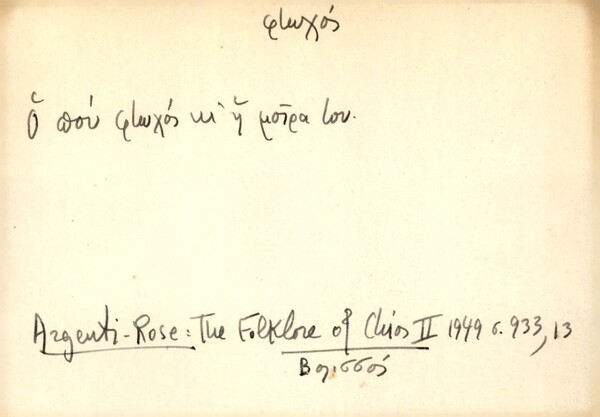 φτωχός
Ὅ πού φτωχός κι' ἡ μοῖρα του.
Argenti-Rose: The Folklore of Chios II 1949 σ. 933, 13
Βολισσός